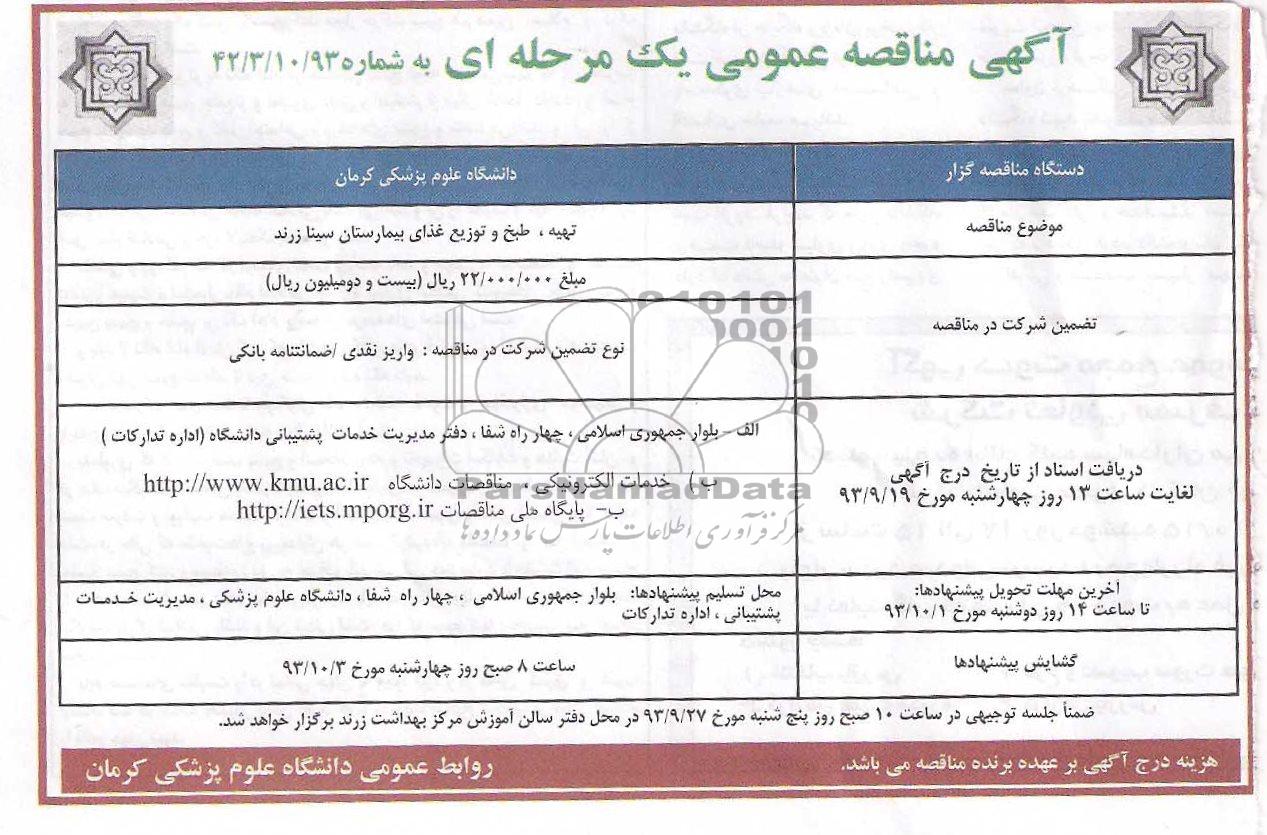 آگهی مناقصه عمومی یک مرحله ای به شماره ۴۲/۳/۱۰/۹۳
دستگاه مناقصه گزار
دانشگاه علوم پزشکی کرمان
موضوع مناقصه
تهیه ، طبخ و توزیع غذای بیمارستان سینا زرند
تضمین شرکت در مناقصه
مبلغ ۲۲/۰۰۰/۰۰۰ ریال (بیست و دومیلیون ریال)
نوع تضمین شرکت در مناقصه : واریز نقدی /ضمانتنامه بانکی
دریافت اسناد از تاریخ درج آگهی
لغایت ساعت ۱۳ روز چهارشنبه مورخ ۹۳/۹/۱۹
الف - بلوار جمهوری اسلامی ، چهار راه شفا ، دفتر مدیریت خدمات پشتیبانی دانشگاه (اداره تدارکات )
ب ) خدمات الکترونیکی ، مناقصات دانشگاه http://www.kmu.ac.ir
ب- پایگاه ملی مناقصات http://iets.mporg.ir
آخرین مهلت تحویل پیشنهادها:
تا ساعت ۱۴ روز دوشنبه مورخ ۹۳/۱۰/۱
محل تسلیم پیشنهادها: بلوار جمهوری اسلامی ، چهار راه شفا ، دانشگاه علوم پزشکی ، مدیریت خدمـات
پشتیبانی ، اداره تدارکات
گشایش پیشنهادها
ساعت ۸ صبح روز چهارشنبه مورخ ۹۳/۱۰/۳
ضمناً جلسه توجیهی در ساعت ۱۰ صبح روز پنج شنبه مورخ ۹۳/۹/۲۷ در محل دفتر سالن آموزش مرکز بهداشت زرند برگزار خواهد شد.
هزینه درج آگهی بر عهده برنده مناقصه می باشد.
روابط عمومی دانشگاه علوم پزشکی کرمان
ParsNamadData
مرکز فرآوری اطلاعات پارس نماد داده ها